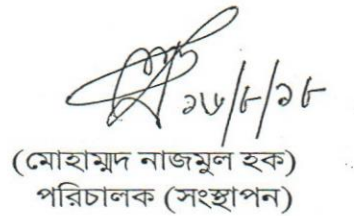 ১৬/৮/১৮
(মোহাম্মদ নাজমুল হক)
পরিচালক (সংস্থাপন)